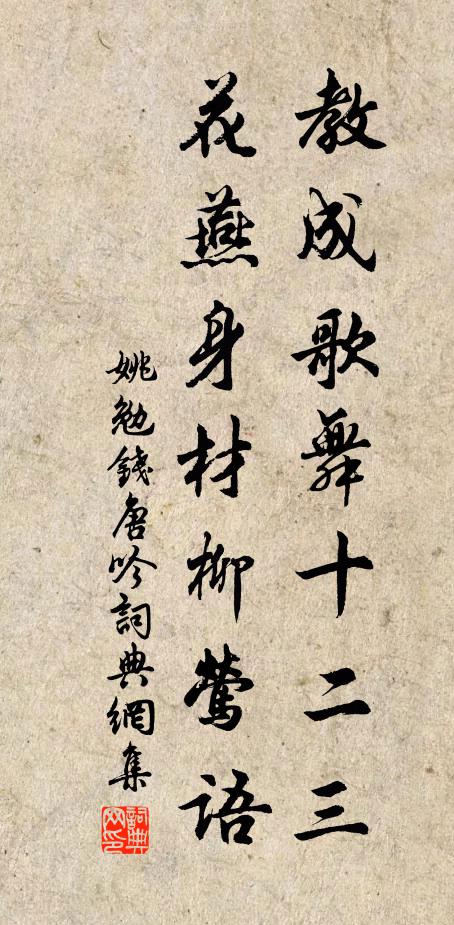 教成歌舞十二三
花燕身材柳鶯語
姚勉錢唐吟詞典網集
詞典网印